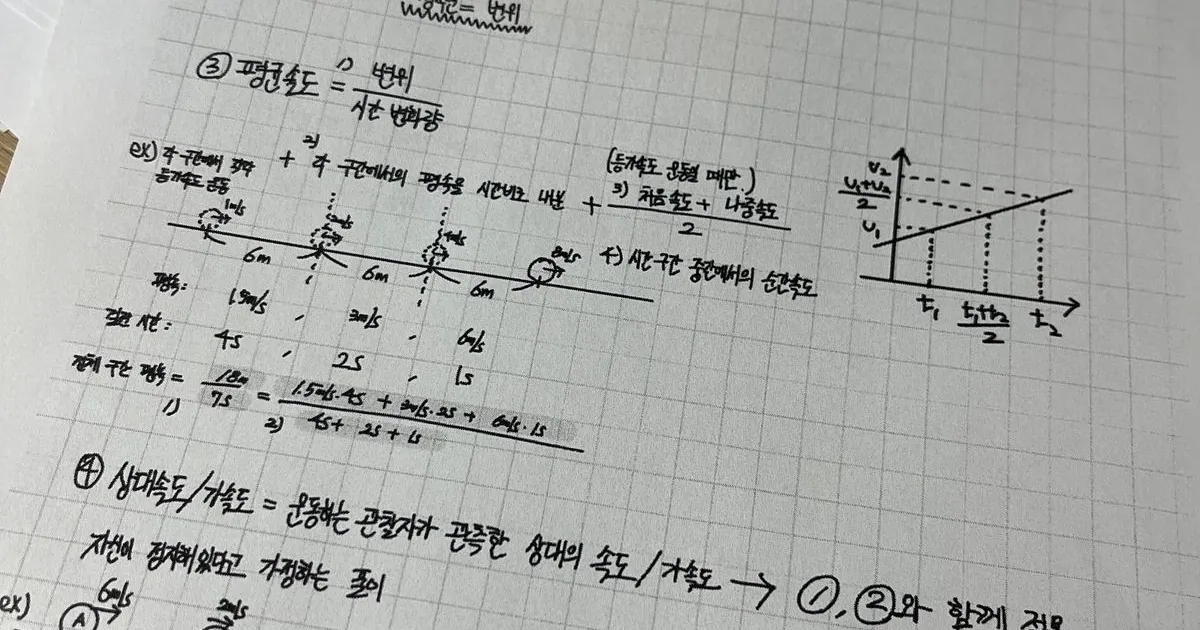 = 변위
③ 평균속도 = 1) 변위 / 시간 변화량
ex) 각 구간에서 각각 등가속도 운동
+ 2) 각 구간에서의 평속을 시간비로 내분
+ 3) 처음속도 + 나중속도 / 2
(등가속도 운동일 때만)
4) 시간 구간 중간에서의 순간속도
1m/s 2m/s 4m/s 8m/s
6m 6m 6m
평속: 1.5m/s , 3m/s , 6m/s
걸린 시간: 4s , 2s , 1s
전체 구간 평속 = 18m / 7s = 1.5m/s·4s + 3m/s·2s + 6m/s·1s / 4s + 2s + 1s
1) 2)
v₂
v₁+v₂ / 2
v₁
t₁ t₁+t₂ / 2 t₂
④ 상대속도/가속도 = 운동하는 관찰자가 관측한 상대의 속도/가속도 → ①, ②와 함께
자신이 정지해있다고 가정하는 풀이
ex) A 6m/s 2m/s